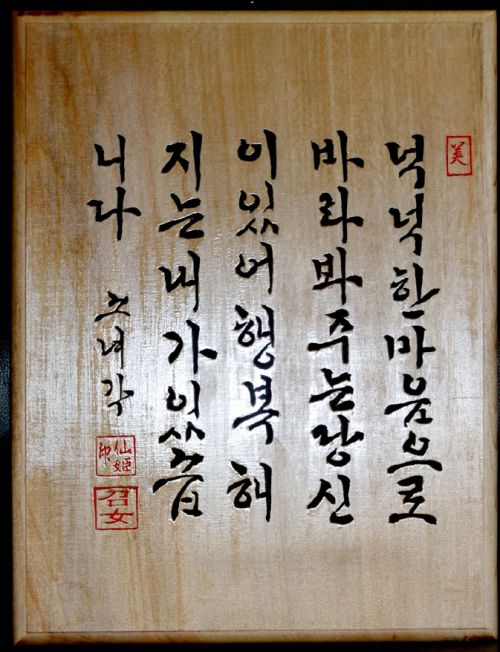 美
넉넉한마음으로
바라봐주는당신
이있어행복해
지는내가있습
니다 소녀각
仙姬印
召女